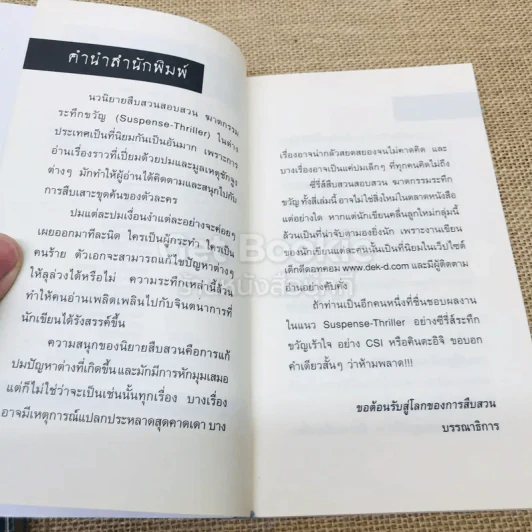 คำนำสำนักพิมพ์
นวนิยายสืบสวนสอบสวน ฆาตกรรม
ระทึกขวัญ (Suspense-Thriller) ในต่าง
ประเทศเป็นที่นิยมกันเป็นอันมาก เพราะการ
อ่านเรื่องราวที่เปี่ยมด้วยปมและมูลเหตุชักจูง
ต่างๆ มักทำให้ผู้อ่านได้คิดตามและสนุกไปกับ
การสืบเสาะขุดค้นของตัวละคร
ปมแต่ละปมเงื่อนงำแต่ละอย่างจะค่อยๆ
เผยออกมาทีละนิด ใครเป็นผู้กระทำ ใครเป็น
คนร้าย ตัวเอกจะสามารถแก้ไขปัญหาต่างๆ
ให้ลุล่วงได้หรือไม่ ความระทึกเหล่านี้ล้วน
ทำให้คนอ่านเพลิดเพลินไปกับจินตนาการที่
นักเขียนได้รังสรรค์ขึ้น
ความสนุกของนิยายสืบสวนคือการแก้
ปมปัญหาต่างที่เกิดขึ้น และมักมีการหักมุมเสมอ
แต่ก็ไม่ใช่ว่าจะเป็นเช่นนั้นทุกเรื่อง บางเรื่อง
อาจมีเหตุการณ์แปลกประหลาดสุดคาดเดา บาง
เรื่องอาจน่ากลัวสยดสยองจนไม่คาดคิด และ
บางเรื่องอาจเป็นแค่ปมเล็กๆ ที่ทุกคนคิดไม่ถึง
ซีรี่ส์สืบสวนสอบสวน ฆาตกรรมระทึก
ขวัญ ทั้งสี่เล่มนี้ อาจไม่ใช่สิ่งใหม่ในตลาดหนังสือ
แต่อย่างใด หากแต่นักเขียนคลื่นลูกใหม่กลุ่มนี้
ล้วนเป็นที่น่าจับตามองยิ่งนัก เพราะงานเขียน
ของนักเขียนแต่ละคนนั้นเป็นที่นิยมในเว็บไซต์
เด็กดีดอทคอม www.dek-d.com และมีผู้ติดตาม
อ่านอย่างคับคั่ง
ถ้าท่านเป็นอีกคนหนึ่งที่ชื่นชอบผลงาน
ในแนว Suspense-Thriller อย่างซีรี่ส์ระทึก
ขวัญเร้าใจ อย่าง CSI หรือคินดะอิจิ ขอบอก
คำเดียวสั้นๆ ว่าห้ามพลาด!!!
ขอต้อนรับสู่โลกของการสืบสวน
บรรณาธิการ